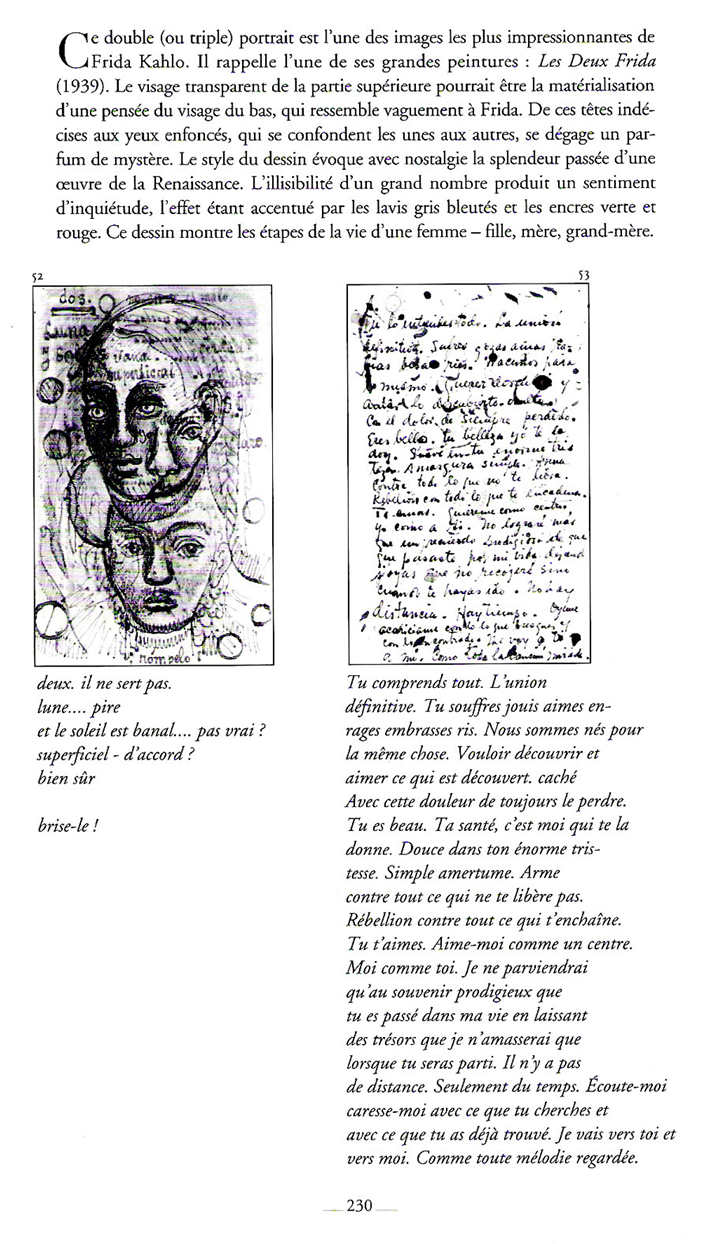 Ce double (ou triple) portrait est l'une des images les plus impressionnantes de
Frida Kahlo. Il rappelle l'une de ses grandes peintures : Les Deux Frida
(1939). Le visage transparent de la partie supérieure pourrait être la matérialisation
d'une pensée du visage du bas, qui ressemble vaguement à Frida. De ces têtes indé-
cises aux yeux enfoncés, qui se confondent les unes aux autres, se dégage un par-
fum de mystère. Le style du dessin évoque avec nostalgie la splendeur passée d'une
œuvre de la Renaissance. L'illisibilité d'un grand nombre produit un sentiment
d'inquiétude, l'effet étant accentué par les lavis gris bleutés et les encres verte et
rouge. Ce dessin montre les étapes de la vie d'une femme – fille, mère, grand-mère.
52
dos.
Luna
superficial
rompelo!
deux. il ne sert pas.
lune.... pire
et le soleil est banal.... pas vrai ?
superficiel - d'accord ?
bien sûr
brise-le !
53
lo entiendes todo. La unión
definitiva. Sufres gozas amas
besas ries. Nacimos para
lo mismo. Querer y
amar lo descubierto.
Con el dolor de siempre perderlo.
Eres bello. tu belleza yo te la
doy. Suave en tu enorme tris
teza. Amargura simple. Arma
contra todo lo que no te libera.
Rebelión con todo lo que te encadena.
Te amas. Quiéreme como centro.
Yo como a ti. No lograré mas
que un recuerdo prodigioso de que
que pasaste por mi vida dejando
joyas que no recogeré sino
cuando te hayas ido. No hay
distancia. Hay tiempo. Oyeme
acariciame con lo que busques y
con lo encontrado. Me voy a ti
a mi. Como toda la canción mirada.
Tu comprends tout. L'union
définitive. Tu souffres jouis aimes en-
rages embrasses ris. Nous sommes nés pour
la même chose. Vouloir découvrir et
aimer ce qui est découvert. caché
Avec cette douleur de toujours le perdre.
Tu es beau. Ta santé, c'est moi qui te la
donne. Douce dans ton énorme tris-
tesse. Simple amertume. Arme
contre tout ce qui ne te libère pas.
Rébellion contre tout ce qui t'enchaîne.
Tu t'aimes. Aime-moi comme un centre.
Moi comme toi. Je ne parviendrai
qu'au souvenir prodigieux que
tu es passé dans ma vie en laissant
des trésors que je n'amasserai que
lorsque tu seras parti. Il n'y a pas
de distance. Seulement du temps. Écoute-moi
caresse-moi avec ce que tu cherches et
avec ce que tu as déjà trouvé. Je vais vers toi et
vers moi. Comme toute mélodie regardée.
230